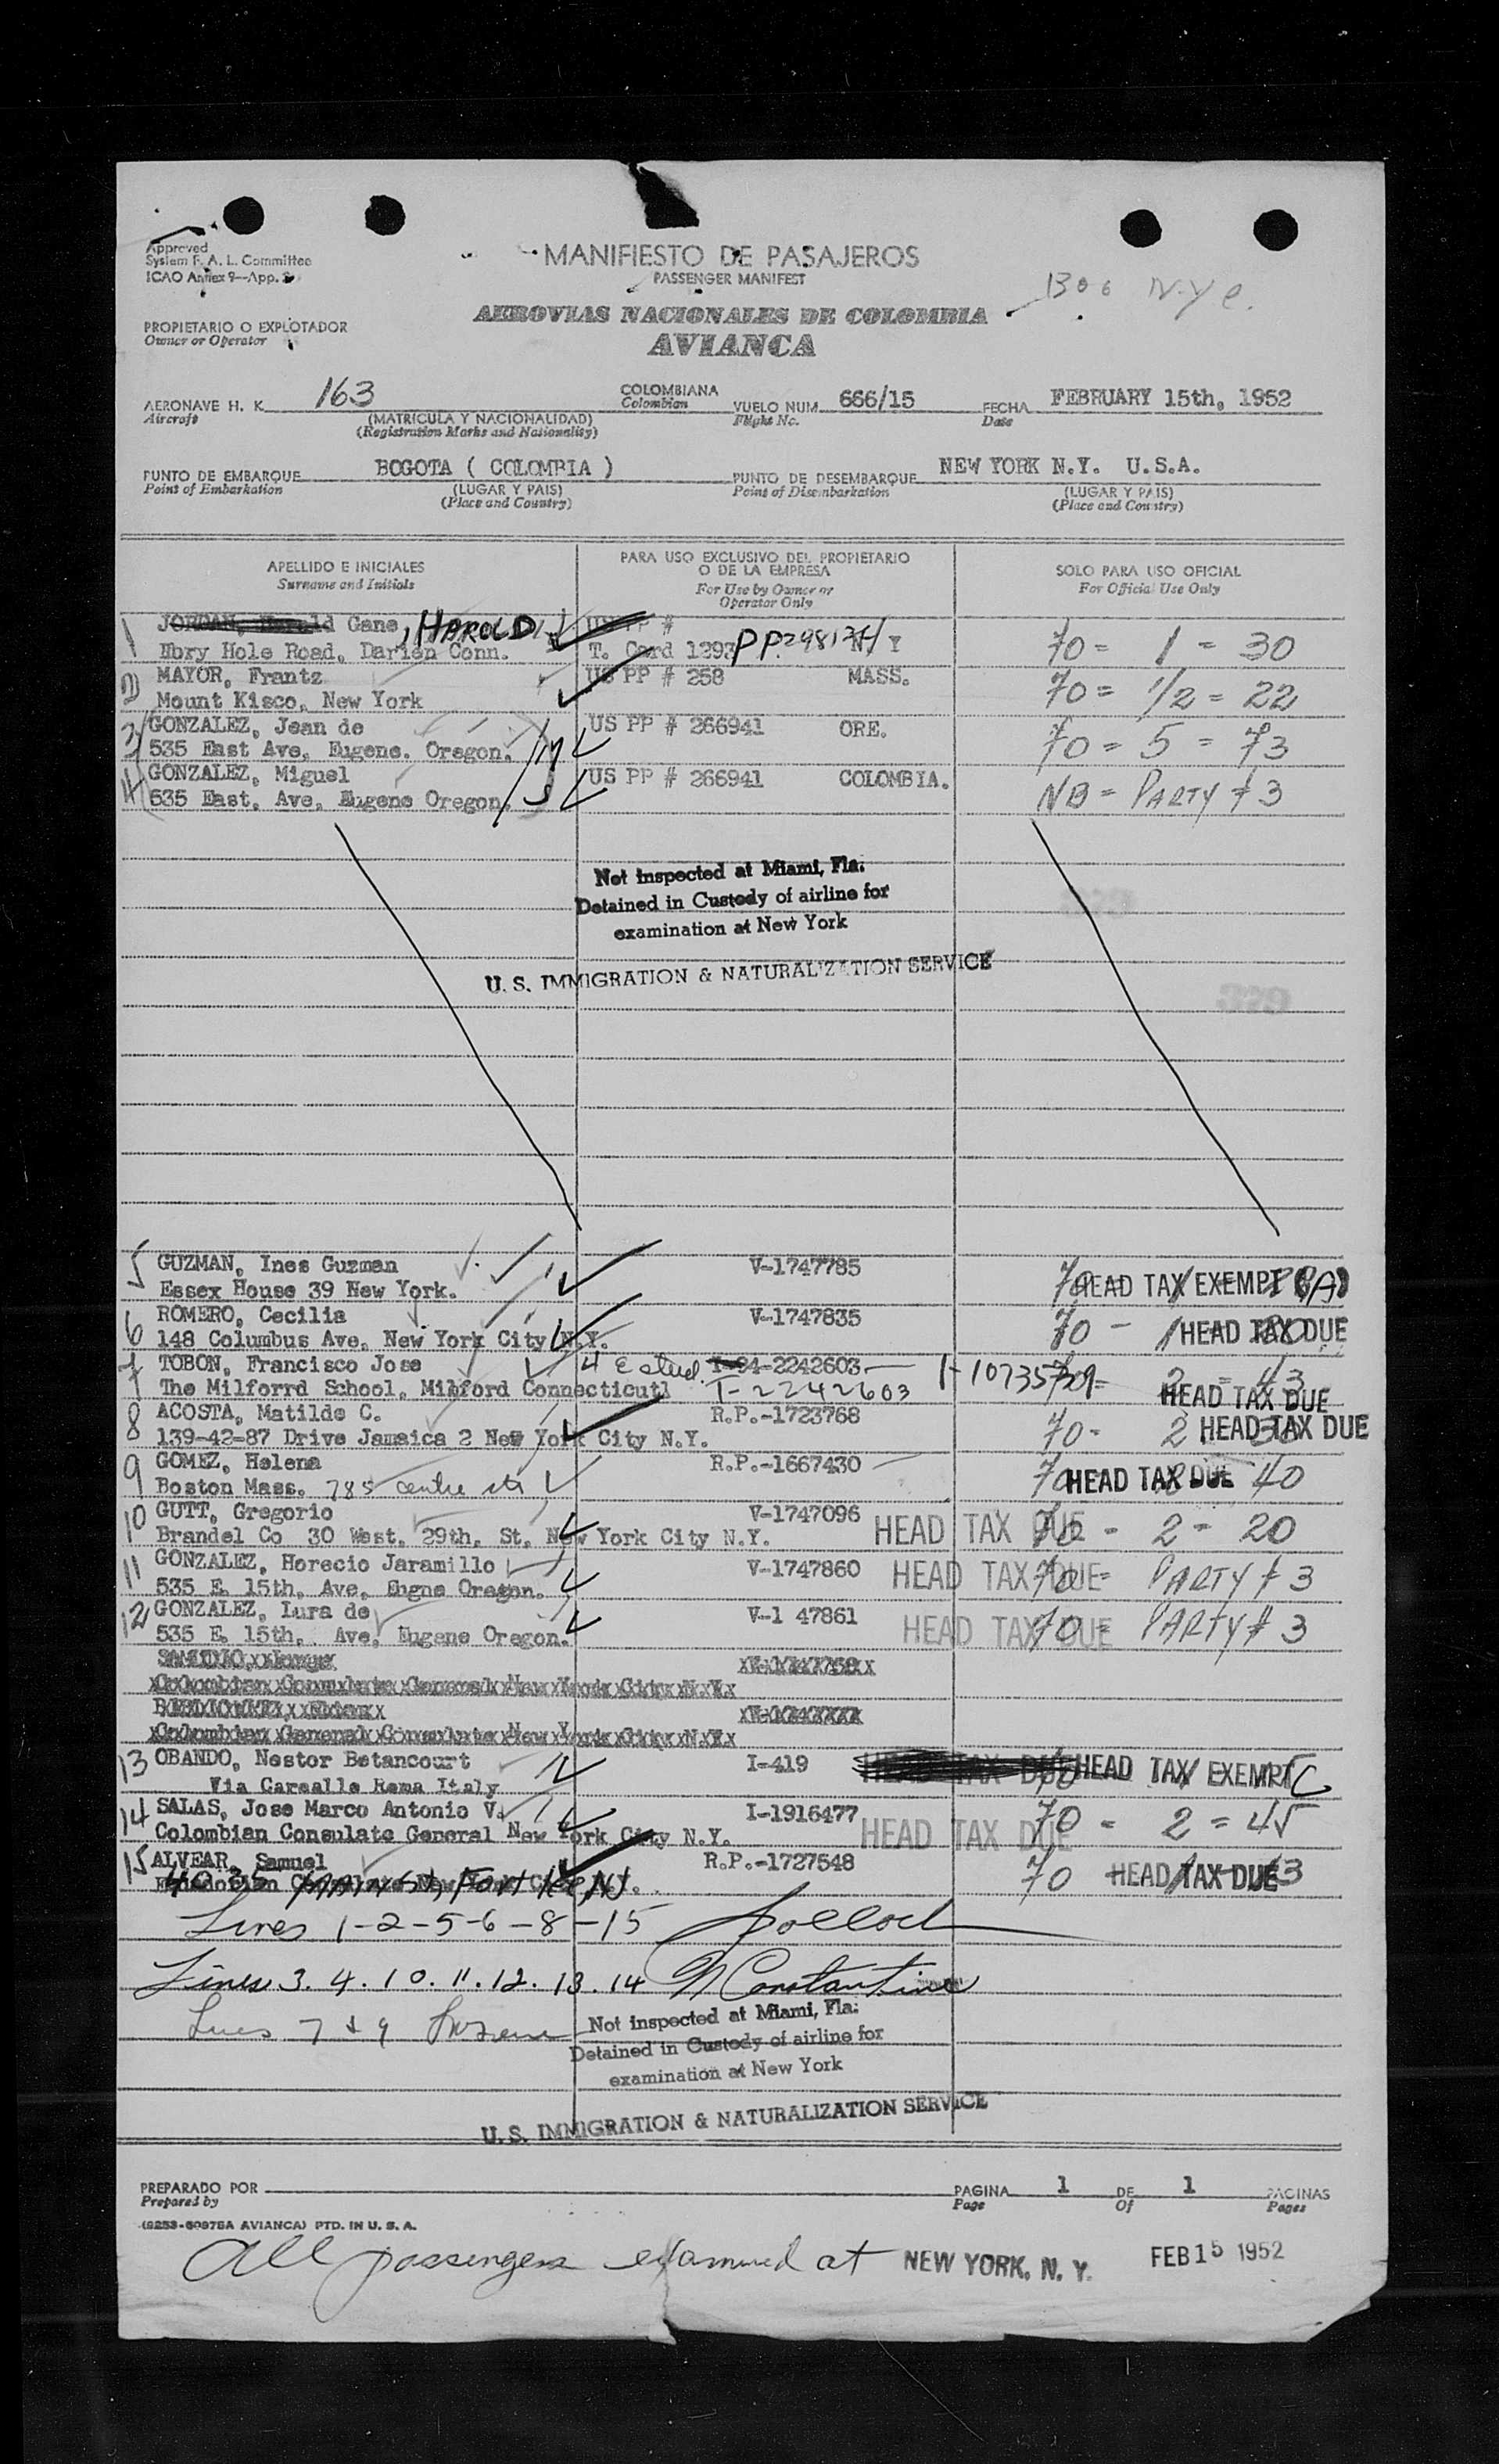 Approved
System F. A. L. Committee
ICAO Annex 9—App. 3
MANIFIESTO DE PASAJEROS
PASSENGER MANIFEST
AEROVIAS NACIONALES DE COLOMBIA
AVIANCA
PROPIETARIO O EXPLOTADOR
Owner or Operator
AERONAVE H. K. 163 COLOMBIANA VUELO NUM. 666/15 FECHA FEBRUARY 15th, 1952
Aircraft (MATRICULA Y NACIONALIDAD) Colombian Flight No. Date
(Registration Marks and Nationality)
PUNTO DE EMBARQUE BOGOTA ( COLOMBIA ) PUNTO DE DESEMBARQUE NEW YORK N.Y. U.S.A.
Point of Embarkation (LUGAR Y PAIS) Point of Disembarkation (LUGAR Y PAIS)
(Place and Country) (Place and Country)
APELLIDO E INICIALES PARA USO EXCLUSIVO DEL PROPIETARIO SOLO PARA USO OFICIAL
Surname and Initials O DE LA EMPRESA For Official Use Only
For Use by Owner or
Operator Only
1 JORDAN, Harold Gene, HAROLD US PP #
Road, Darien Conn. T. Card 1293 70 = 1 = 30
2 MAYOR, Frantz US PP # 258 MASS.
Mount Kisco, New York 70 = 1/2 = 22
3 GONZALEZ, Jean de US PP # 266941 ORE.
535 East Ave, Eugene. Oregon. 70 = 5 = 73
4 GONZALEZ, Miguel US PP # 266941 COLOMBIA.
535 East. Ave, Eugene Oregon. NB = PARTY # 3
Not inspected at Miami, Fla.
Detained in Custody of airline for
examination at New York
U. S. IMMIGRATION & NATURALIZATION SERVICE
5 GUZMAN, Ines Guzman V-1747785
Essex House 39 New York. 70 HEAD TAX EXEMPT
6 ROMERO, Cecilia V-1747835
148 Columbus Ave, New York City N.Y. 70 - 1 HEAD TAX DUE
7 TOBON, Francisco Jose 4 E stud. 94-2242603
The Milforrd School, Milford Connecticutl T-2242603 2 = 43
HEAD TAX DUE
8 ACOSTA, Matilde C. R.P.-1723768
139-42-87 Drive Jamaica 2 New York City N.Y. 70 - 2 HEAD TAX DUE
9 GOMEZ, Helena R.P.-1667430
Boston Mass. 785 centre str 70 HEAD TAX DUE 40
10 GUTT, Gregorio V-1747096
Brandel Co 30 West. 29th, St. New York City N.Y. HEAD TAX DUE 70 - 2 - 20
11 GONZALEZ, Horecio Jaramillo V-1747860
535 E. 15th, Ave, Eugne Oregon. HEAD TAX DUE 70 = PARTY # 3
12 GONZALEZ, Lura de V-1 47861
535 E. 15th, Ave, Eugene Oregon. HEAD TAX DUE 70 = PARTY # 3
13 OBANDO, Nestor Betancourt I-419
Via Caroalle Roma Italy HEAD TAX DUE HEAD TAX EXEMPT
14 SALAS, Jose Marco Antonio V. I-1916477
Colombian Consulate General New York City N.Y. HEAD TAX DUE 70 - 2 = 45
15 ALVEAR, Samuel R.P.-1727548
70 HEAD TAX DUE
Lines 1-2-5-6-8-15 Pollock
Lines 3. 4. 10. 11. 12. 13. 14 Constantine
Lines 7 & 9
Not inspected at Miami, Fla.
Detained in Custody of airline for
examination at New York
U. S. IMMIGRATION & NATURALIZATION SERVICE
PREPARADO POR PAGINA 1 DE 1 PAGINAS
Prepared by Page Of Pages
AVIANCA) PTD. IN U. S. A.
All passengers examined at NEW YORK, N. Y. FEB 15 1952